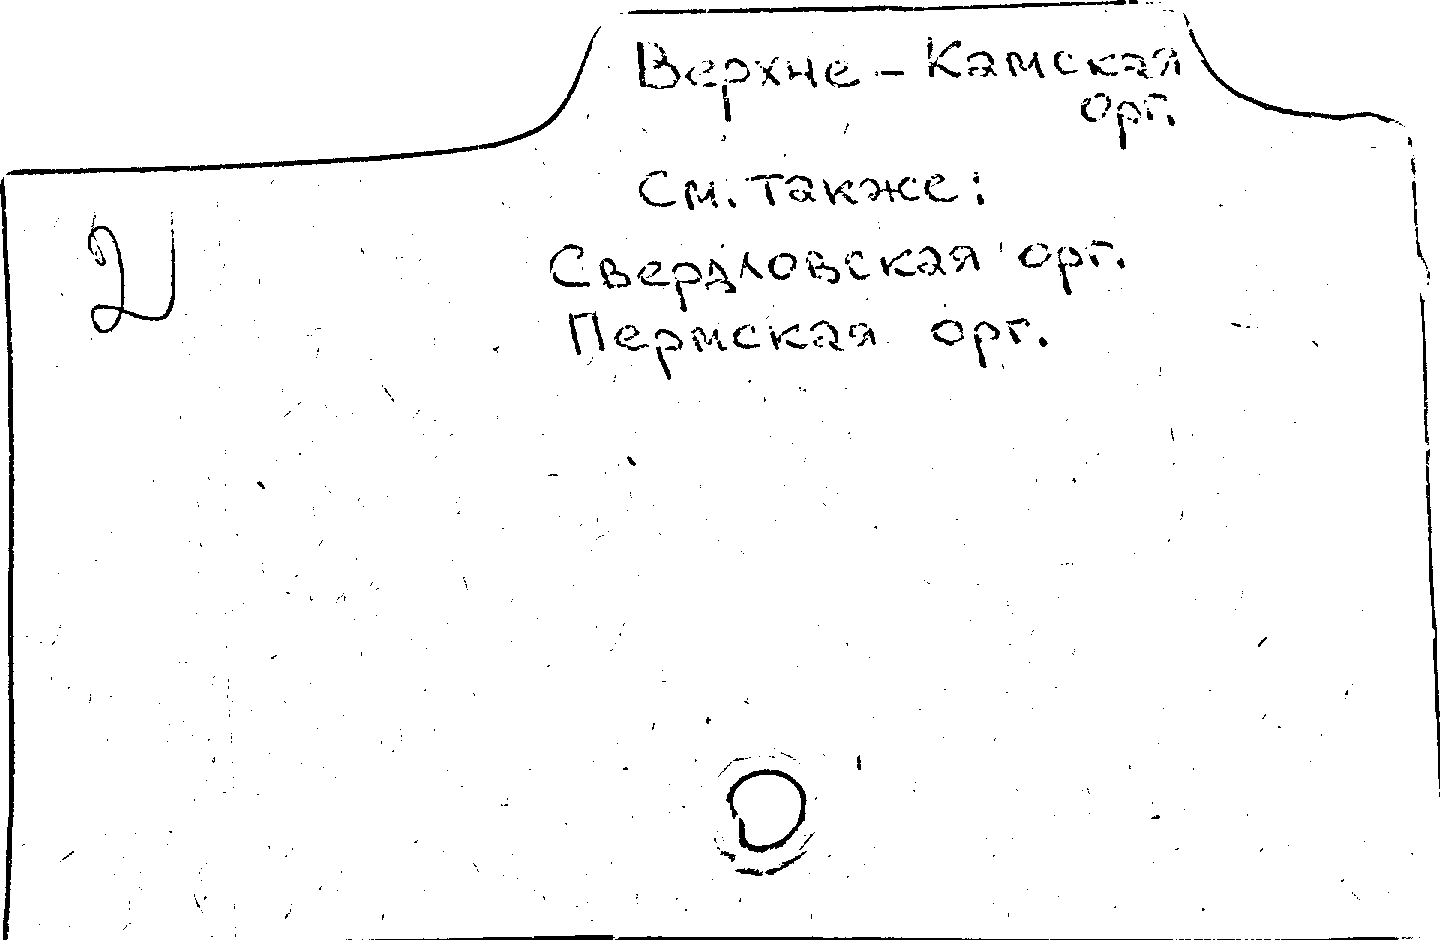 Верхне-Камская
орг.
См. также:
Свердловская орг.
Пермская орг.
2